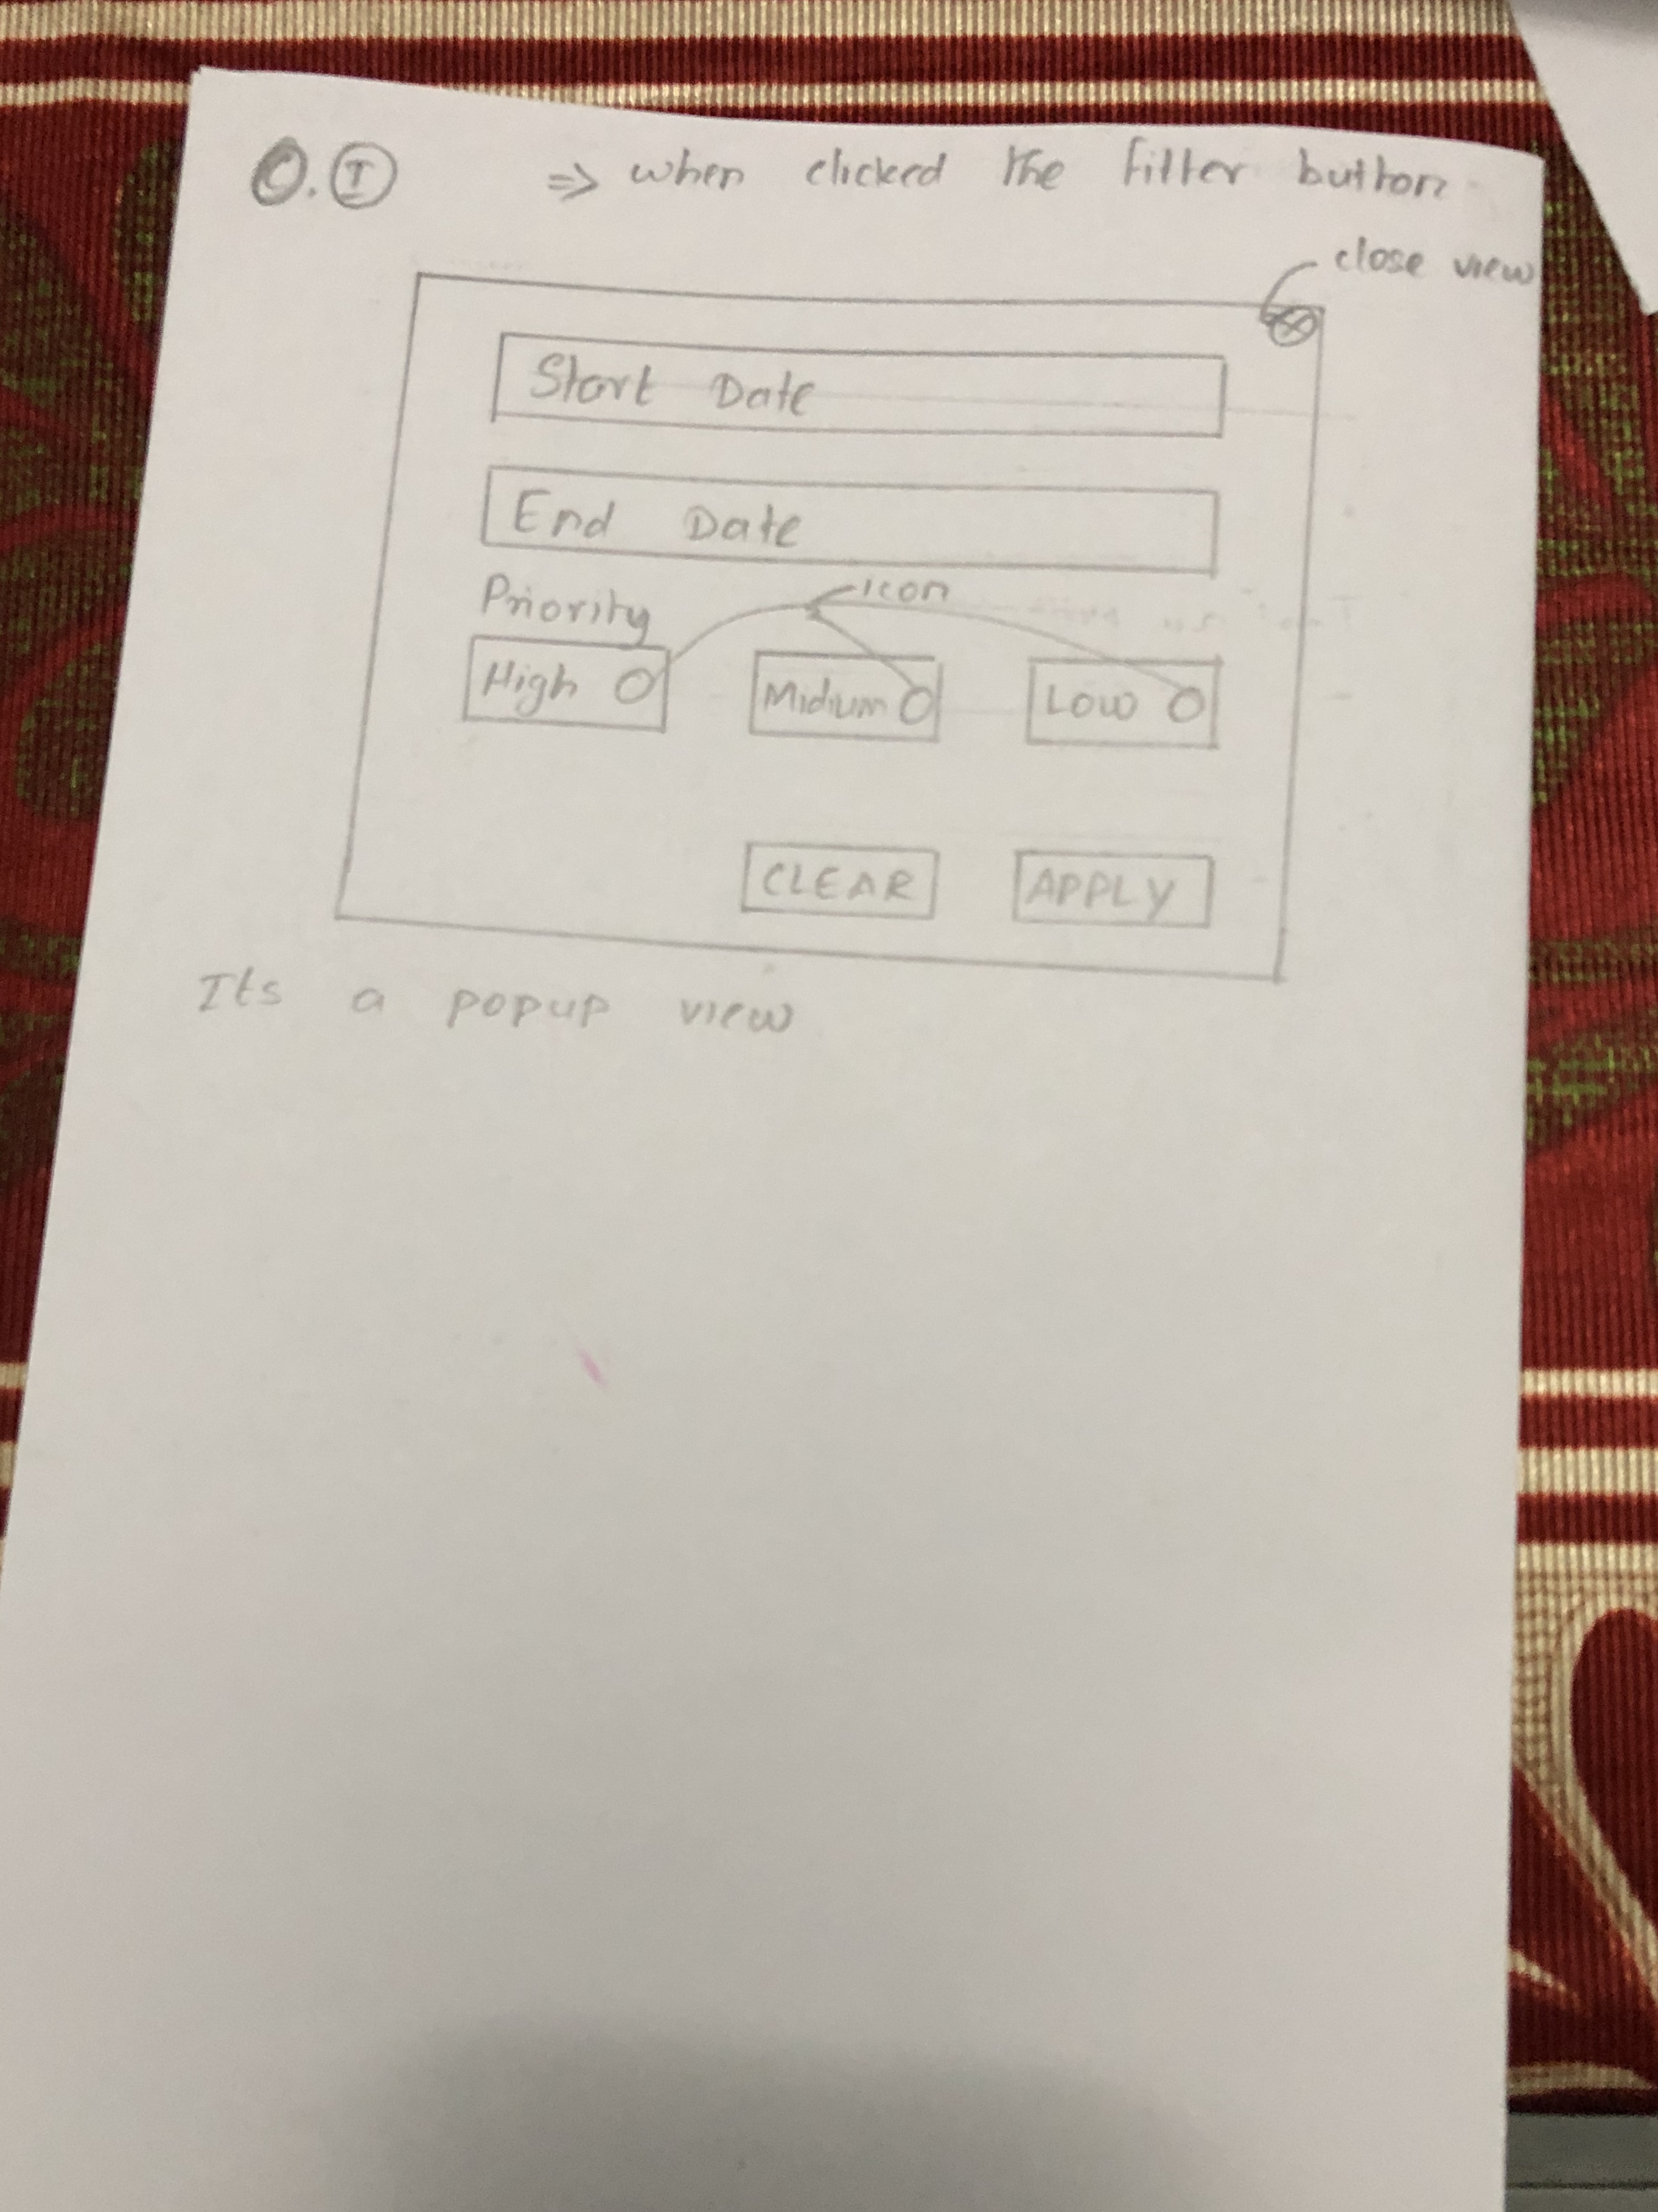 O. I ⇒ when clicked the filter button
close view
Start Date
End Date
icon
Priority
High Midium Low
CLEAR APPLY
Its a popup view